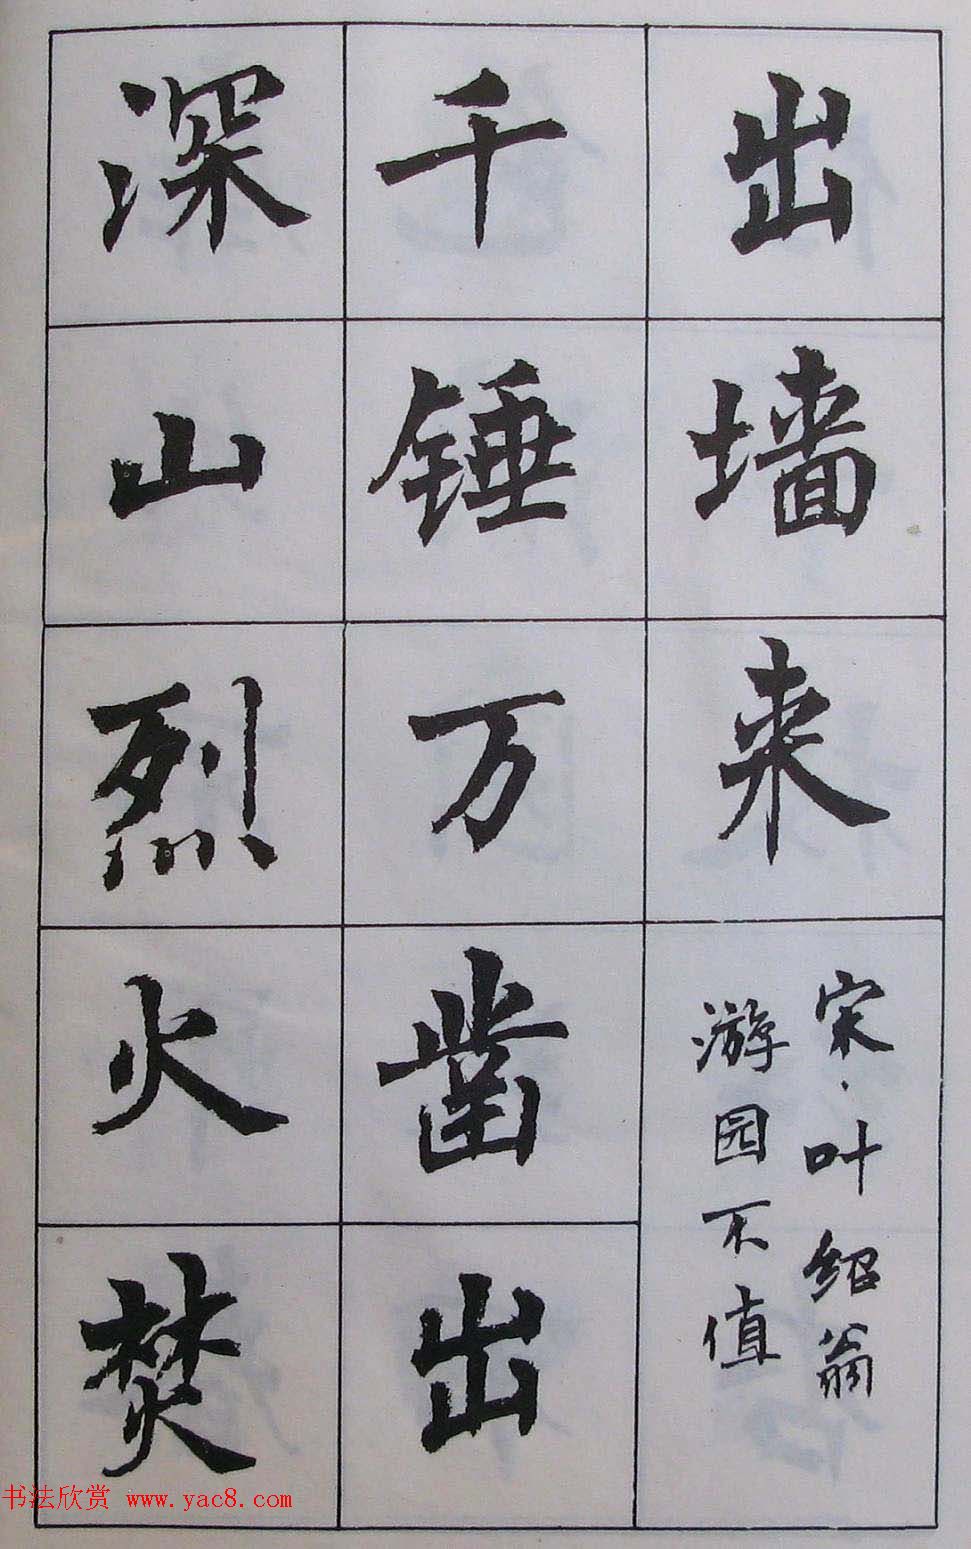 出墙来
宋·叶绍翁
游园不值
千锤万凿出
深山烈火焚
书法欣赏 www.yac8.com